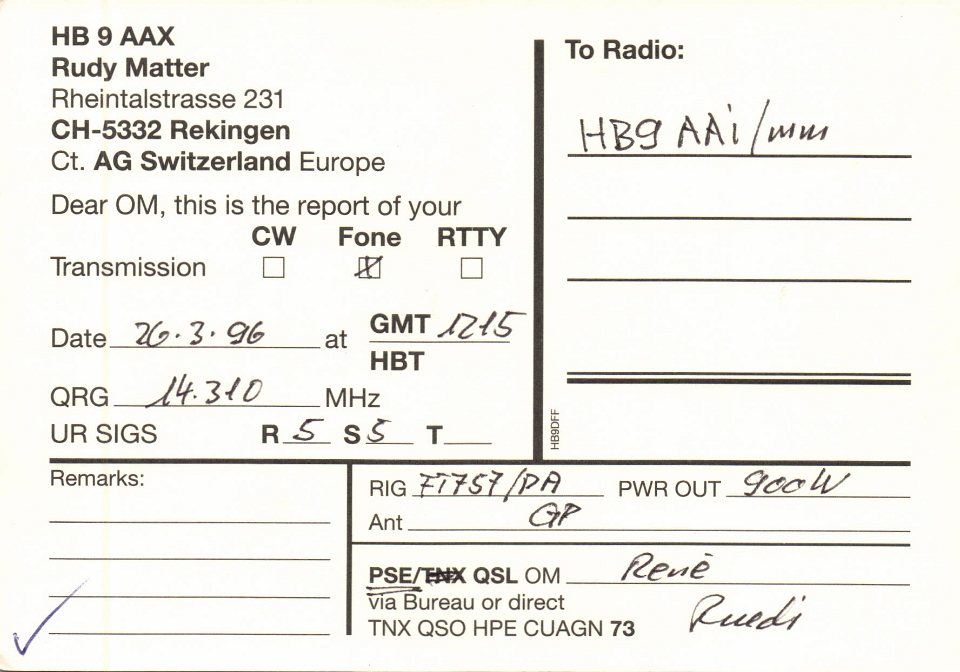 HB 9 AAX
Rudy Matter
Rheintalstrasse 231
CH-5332 Rekingen
Ct. AG Switzerland Europe
Dear OM, this is the report of your
CW Fone RTTY
Transmission
Date 26.3.96 at GMT 1215
HBT
QRG 14.310 MHz
UR SIGS R 5 S 5 T
To Radio:
HB9 AAi/mm
HB9DFF
Remarks:
RIG FT757/PA PWR OUT 900W
Ant GP
PSE/TNX QSL OM Renè
via Bureau or direct
TNX QSO HPE CUAGN 73 Ruedi